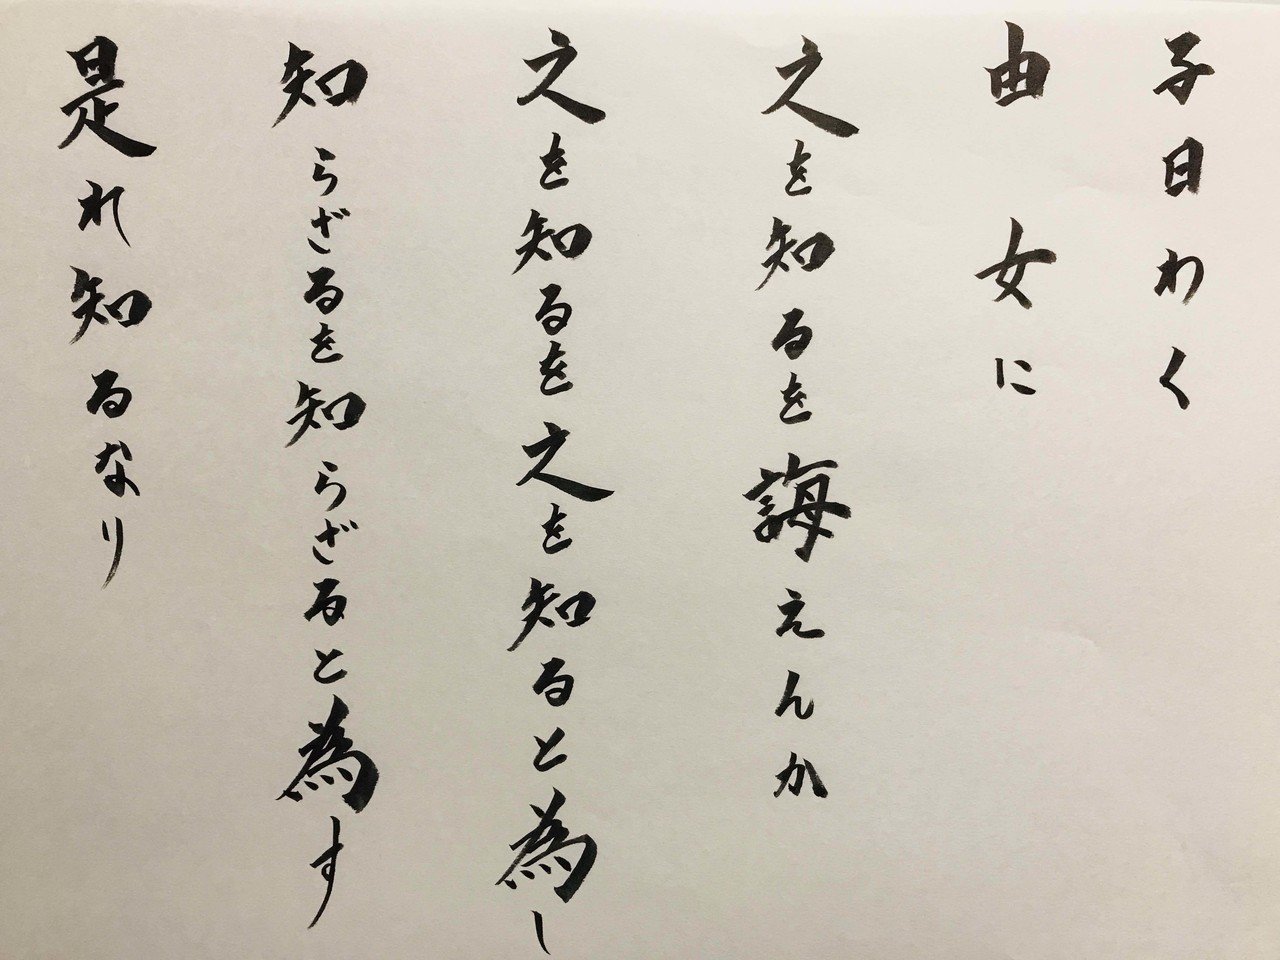 子曰わく
由 女に
之を知るを誨えんか
之を知るを之を知ると為し
知らざるを知らざると為す
是れ知るなり